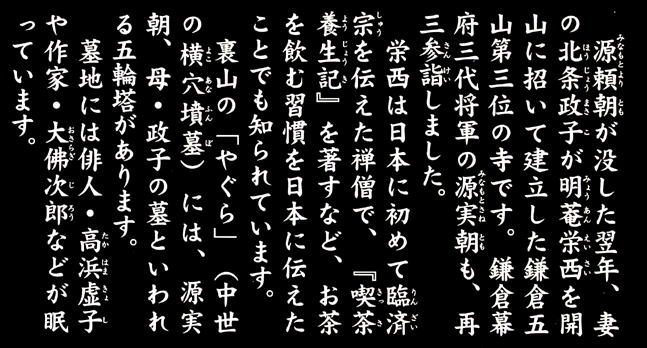 源頼朝が没した翌年、妻
の北条政子が明菴栄西を開
山に招いて建立した鎌倉五
山第三位の寺です。鎌倉幕
府三代将軍の源実朝も、再
三参詣しました。
栄西は日本に初めて臨済
宗を伝えた禅僧で、『喫茶
養生記』を著すなど、お茶
を飲む習慣を日本に伝えた
ことでも知られています。
裏山の「やぐら」（中世
の横穴墳墓）には、源実
朝、母・政子の墓といわれ
る五輪塔があります。
墓地には俳人・高浜虚子
や作家・大佛次郎などが眠
っています。